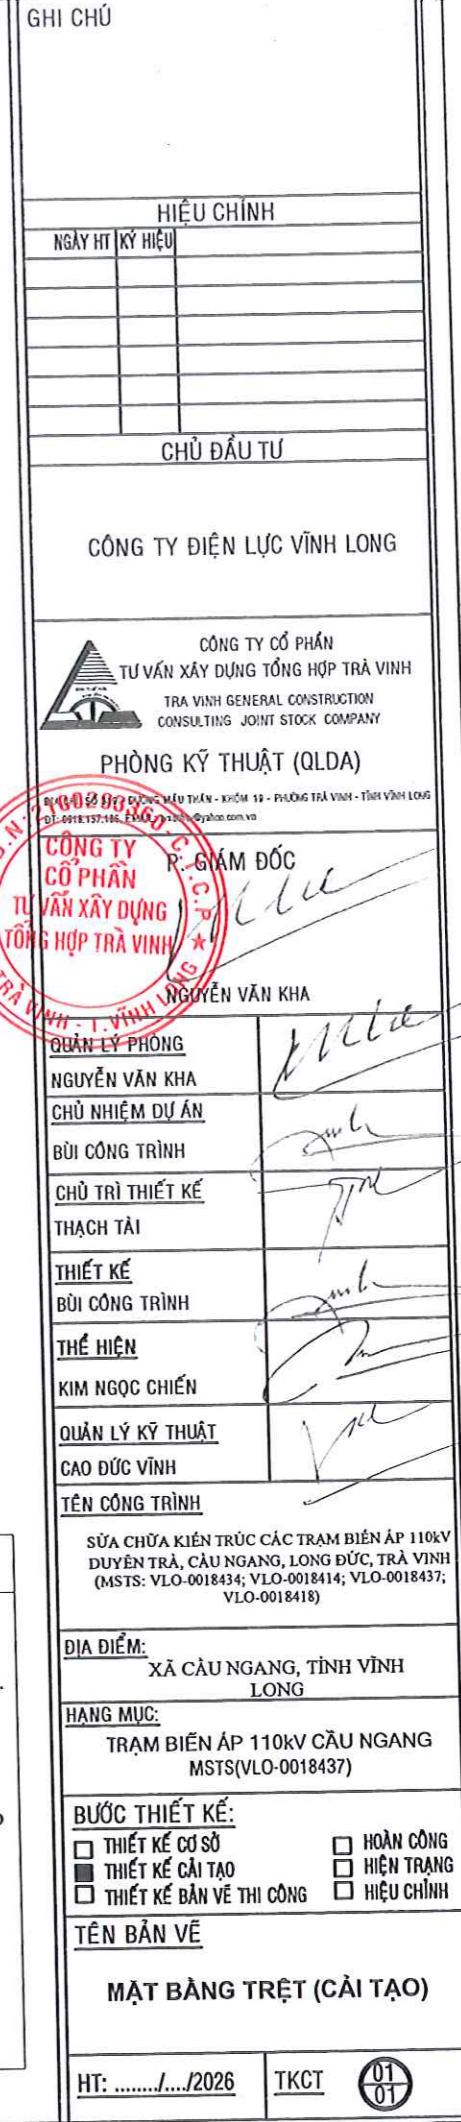 GHI CHÚ
HIỆU CHỈNH
NGÀY HT KÝ HIỆU
CHỦ ĐẦU TƯ
CÔNG TY ĐIỆN LỰC VĨNH LONG
CÔNG TY CỔ PHẦN
TƯ VẤN XÂY DỰNG TỔNG HỢP TRÀ VINH
TRA VINH GENERAL CONSTRUCTION
CONSULTING JOINT STOCK COMPANY
PHÒNG KỸ THUẬT (QLDA)
ĐƯỜNG MẬU THÂN - KHÓM 10 - PHƯỜNG TRÀ VINH - TỈNH VĨNH LONG
CÔNG TY
CỔ PHẦN
TƯ VẤN XÂY DỰNG
TỔNG HỢP TRÀ VINH
TRÀ VINH - T. VĨNH LONG
P. GIÁM ĐỐC
NGUYỄN VĂN KHA
QUẢN LÝ PHÒNG
NGUYỄN VĂN KHA
CHỦ NHIỆM DỰ ÁN
BÙI CÔNG TRÌNH
CHỦ TRÌ THIẾT KẾ
THẠCH TÀI
THIẾT KẾ
BÙI CÔNG TRÌNH
THỂ HIỆN
KIM NGỌC CHIẾN
QUẢN LÝ KỸ THUẬT
CAO ĐỨC VĨNH
TÊN CÔNG TRÌNH
SỬA CHỮA KIẾN TRÚC CÁC TRẠM BIẾN ÁP 110kV
DUYÊN TRÀ, CẦU NGANG, LONG ĐỨC, TRÀ VINH
(MSTS: VLO-0018434; VLO-0018414; VLO-0018437;
VLO-0018418)
ĐỊA ĐIỂM:
XÃ CẦU NGANG, TỈNH VĨNH
LONG
HẠNG MỤC:
TRẠM BIẾN ÁP 110kV CẦU NGANG
MSTS(VLO-0018437)
BƯỚC THIẾT KẾ:
THIẾT KẾ CƠ SỞ HOÀN CÔNG
THIẾT KẾ CẢI TẠO HIỆN TRẠNG
THIẾT KẾ BẢN VẼ THI CÔNG HIỆU CHỈNH
TÊN BẢN VẼ
MẶT BẰNG TRỆT (CẢI TẠO)
HT: ......../..../2026 TKCT 01
01